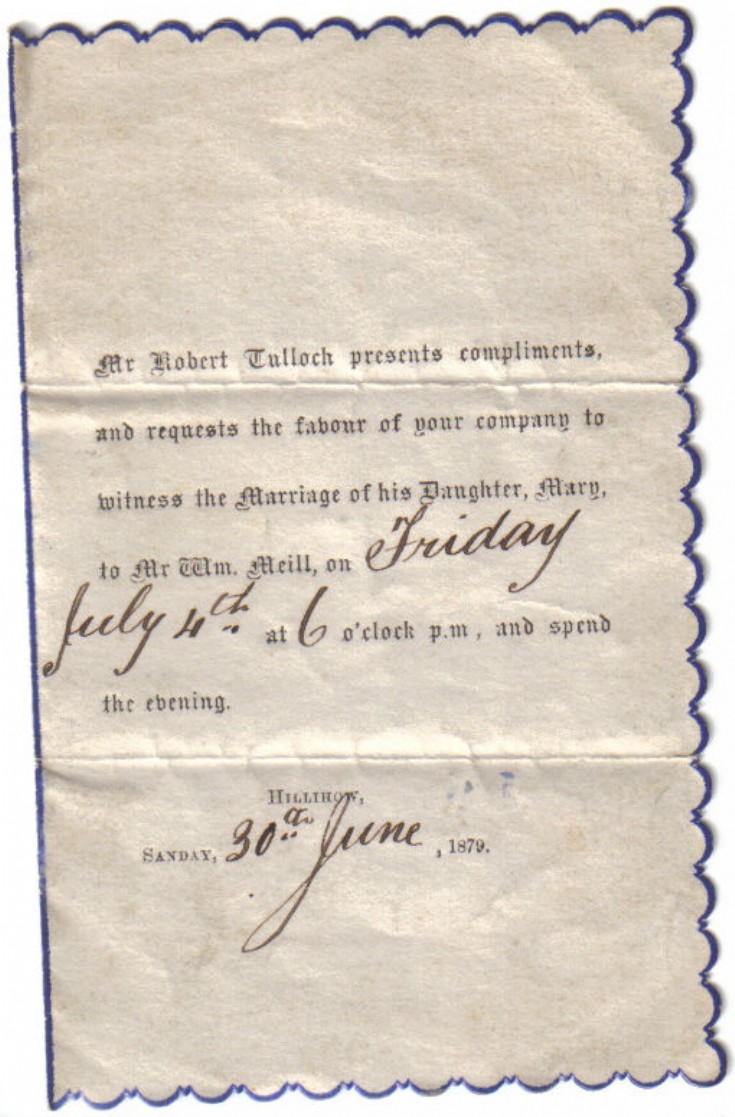 Mr Robert Tulloch presents compliments,
and requests the favour of your company to
witness the Marriage of his Daughter, Mary,
to Mr Wm. Meill, on Friday
July 4th at 6 o'clock p.m, and spend
the evening.
HILLIHOW,
SANDAY, 30th June, 1879.